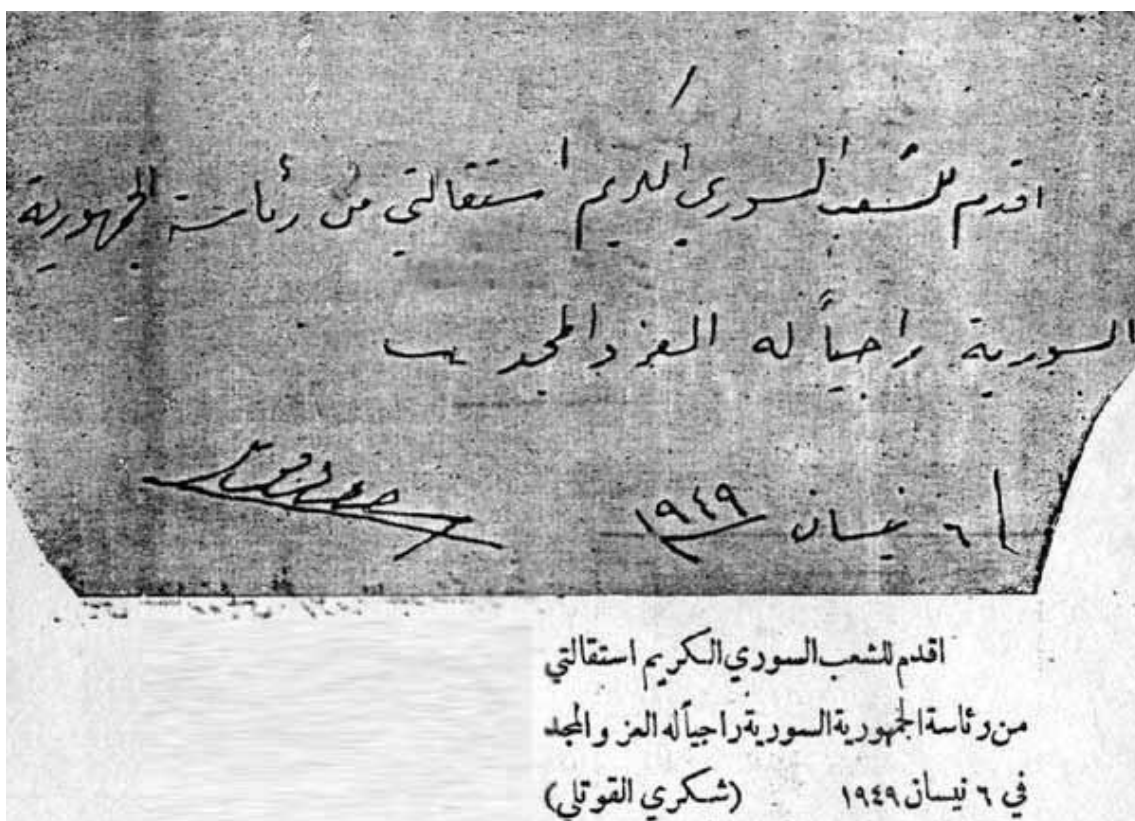 اقدم للشعب السوري الكريم استقالتي من رئاسة الجمهورية
السورية راجياً له العز والمجد
٦ نيسان ١٩٤٩
اقدم للشعب السوري الكريم استقالتي
من رئاسة الجمهورية السورية راجياً له العز والمجد
في ٦ نيسان ١٩٤٩ (شكري القوتلي)